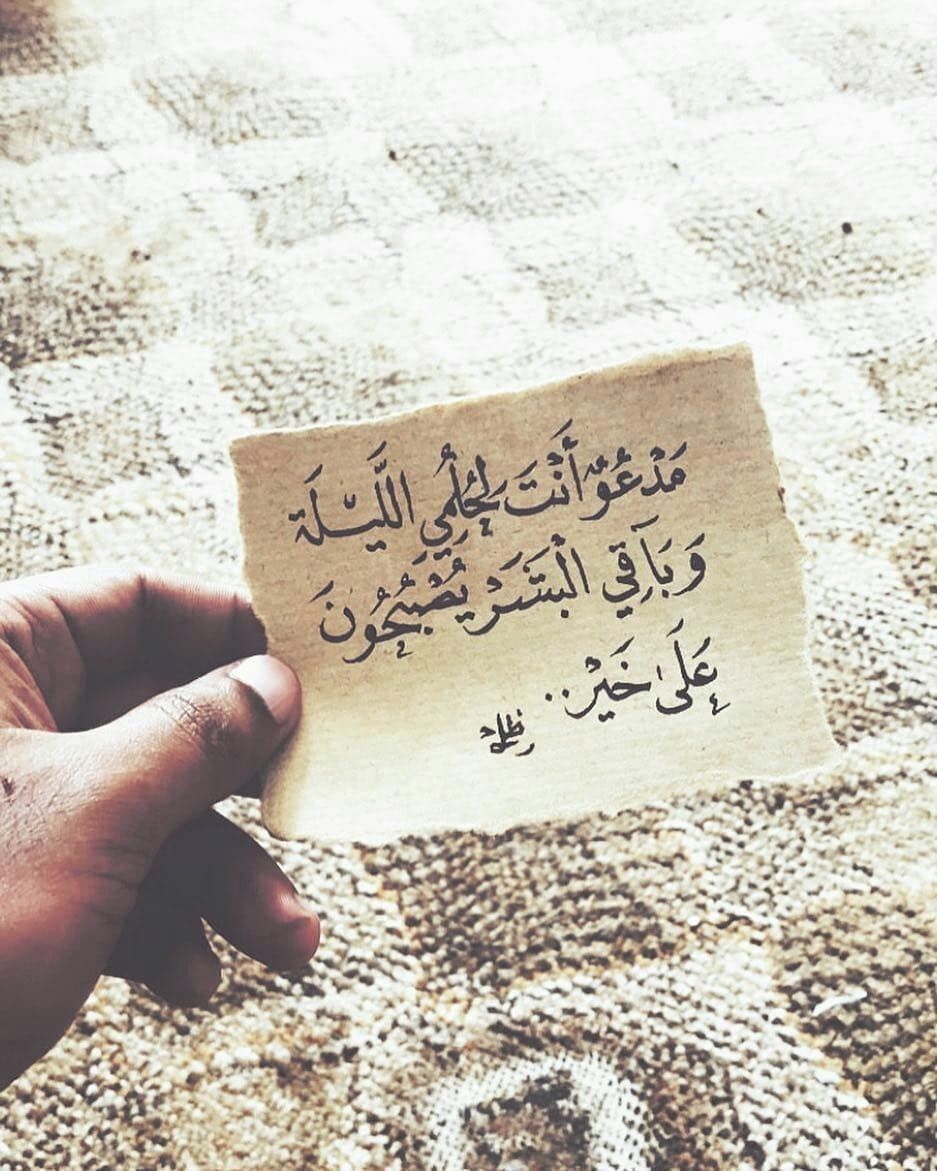 مَدْعُوٌّ أَنْتَ لِحُلُمِي اللَّيْلَة
وَبَاقِي الْبَشَرْ يُصْبِحُونَ
عَلَىٰ خَيْرْ..